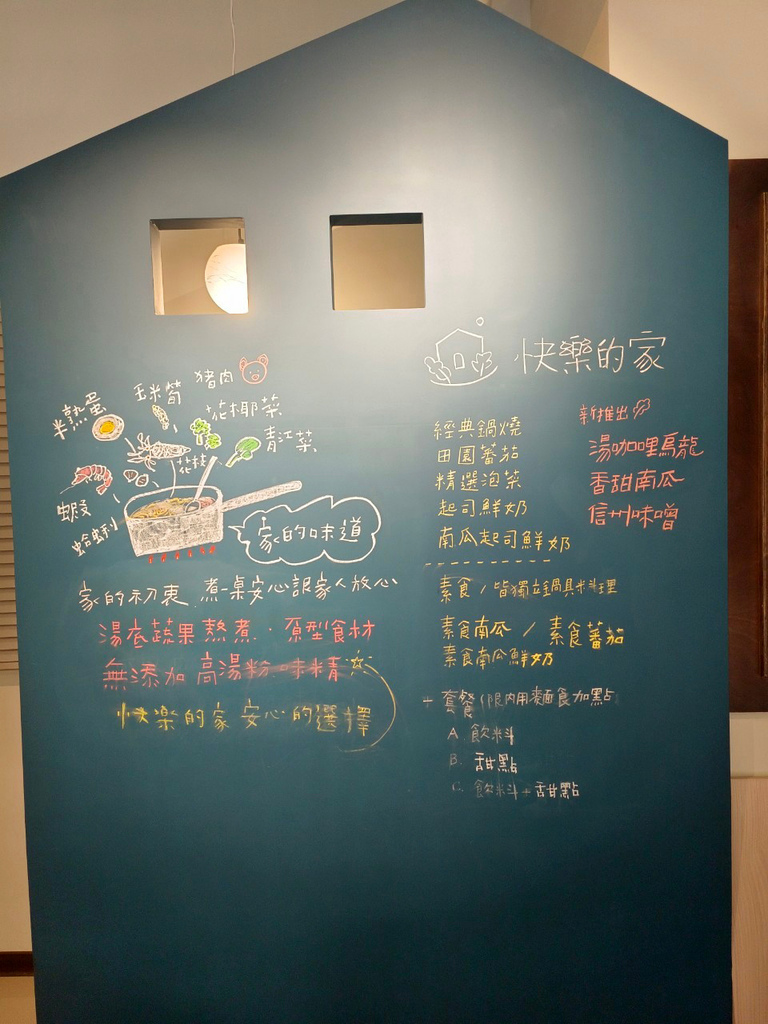 半熟蛋
玉米筍
猪肉
花椰菜
青江菜
花枝
蝦
蛤蜊
家的味道
家的初衷 煮一桌安心讓家人放心
湯底蔬果熬煮·原型食材
無添加 高湯粉 味精
快樂的家 安心的選擇
快樂的家
經典鍋燒
田園蕃茄
精選泡菜
起司鮮奶
南瓜起司鮮奶
新推出
湯咖哩烏龍
香甜南瓜
信州味噌
素食/皆獨立鍋具料理
素食南瓜 / 素食蕃茄
素食南瓜鮮奶
+ 套餐(限內用湊麵食加點
A. 飲料
B. 甜點
C. 飲料+甜點